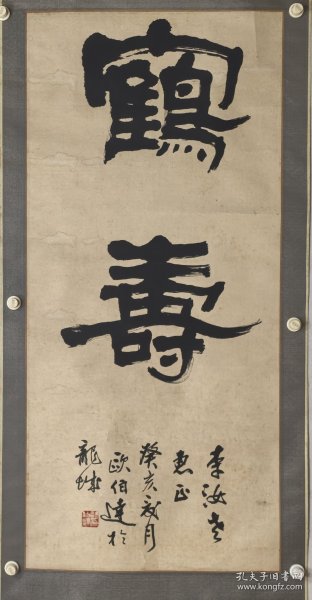 鶴
壽
李汝老
惠正
癸亥歲月
歐伯達於
龍城
孔夫子旧书网
www.kongfz.com